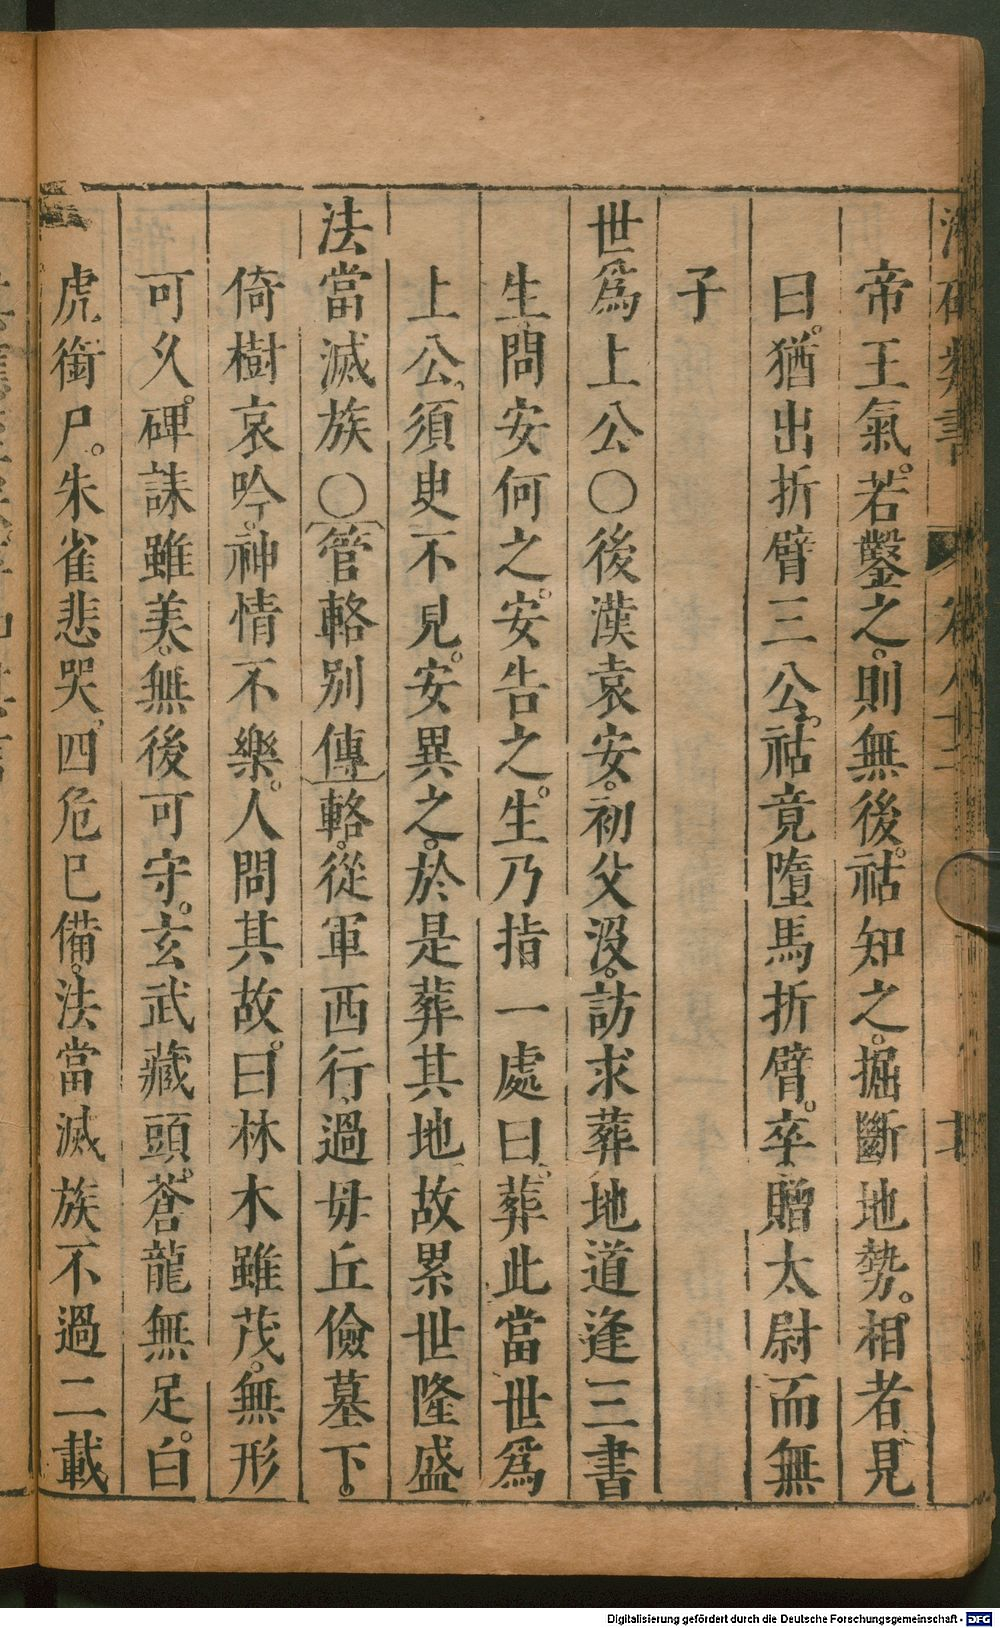 帝王氣。若鑿之。則無後。祜知之。掘斷地勢。相者見
曰。猶出折臂三公。祜竟墮馬折臂。卒贈太尉而無
子
世爲上公〇後漢袁安。初父沒。訪求葬地道逢三書
生。問安何之。安告之。生乃指一處曰。葬此當世爲
上公。須臾不見。安異之。於是葬其地。故累世隆盛
法當滅族〇管輅別傳輅。從軍西行。過毋丘儉墓下。
倚樹哀吟。神情不樂。人問其故。曰林木雖茂。無形
可久。碑誄雖美。無後可守。玄武藏頭。蒼龍無足。白
虎銜尸。朱雀悲哭。四危已備。法當滅族不過二載
Digitalisierung gefördert durch die Deutsche Forschungsgemeinschaft - DFG